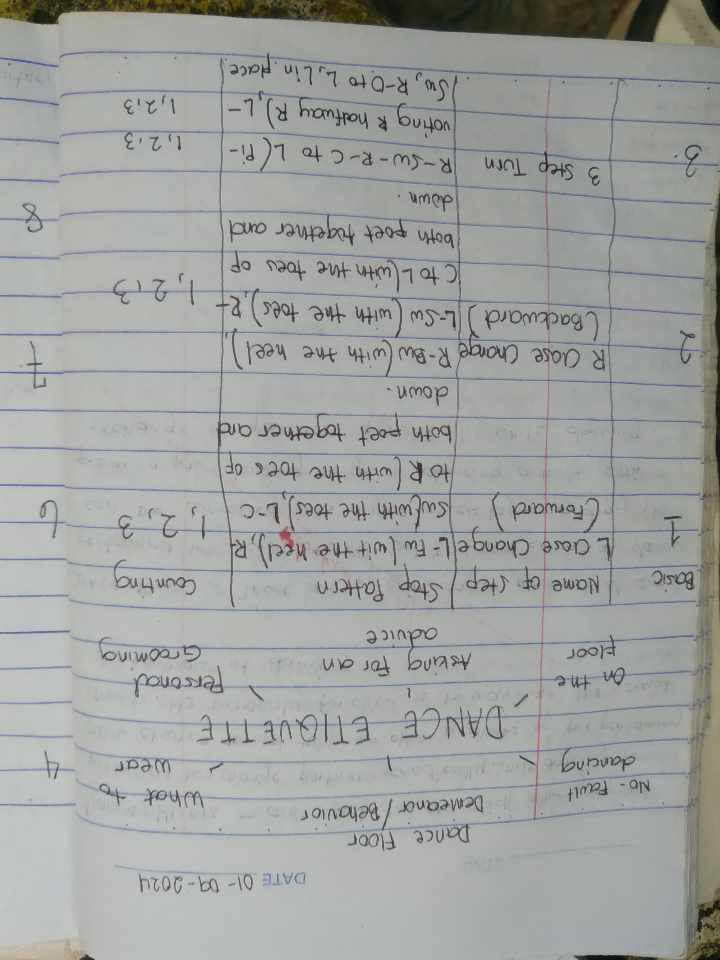 DATE 01-09-2024
Dance Floor
Demeanor / Behavior
No-Fault
dancing
What to
wear
DANCE ETIQUETTE
On the
Floor
Asking For an
advice
Personal
Grooming
Basic Name of step Stop Pattern Counting
1 L Close Change L-Fw (wit the heel), R-
(Forward) Sw(with the toes), L-C 1, 2, 3
to R (with the toes of
both poet together and
down.
2 R Close Change R-Bw (with the heel),
(Backward) L-Sw (with the toes), R- 1, 2, 3
C to L (with the toes of
both poet together and
down.
3. 3 Step Turn R-Sw-R-C to L (Pi- 1, 2, 3
voting R halfway R), L- 1, 2, 3
Sw, R-O to L, L in place.
4
6
7
8